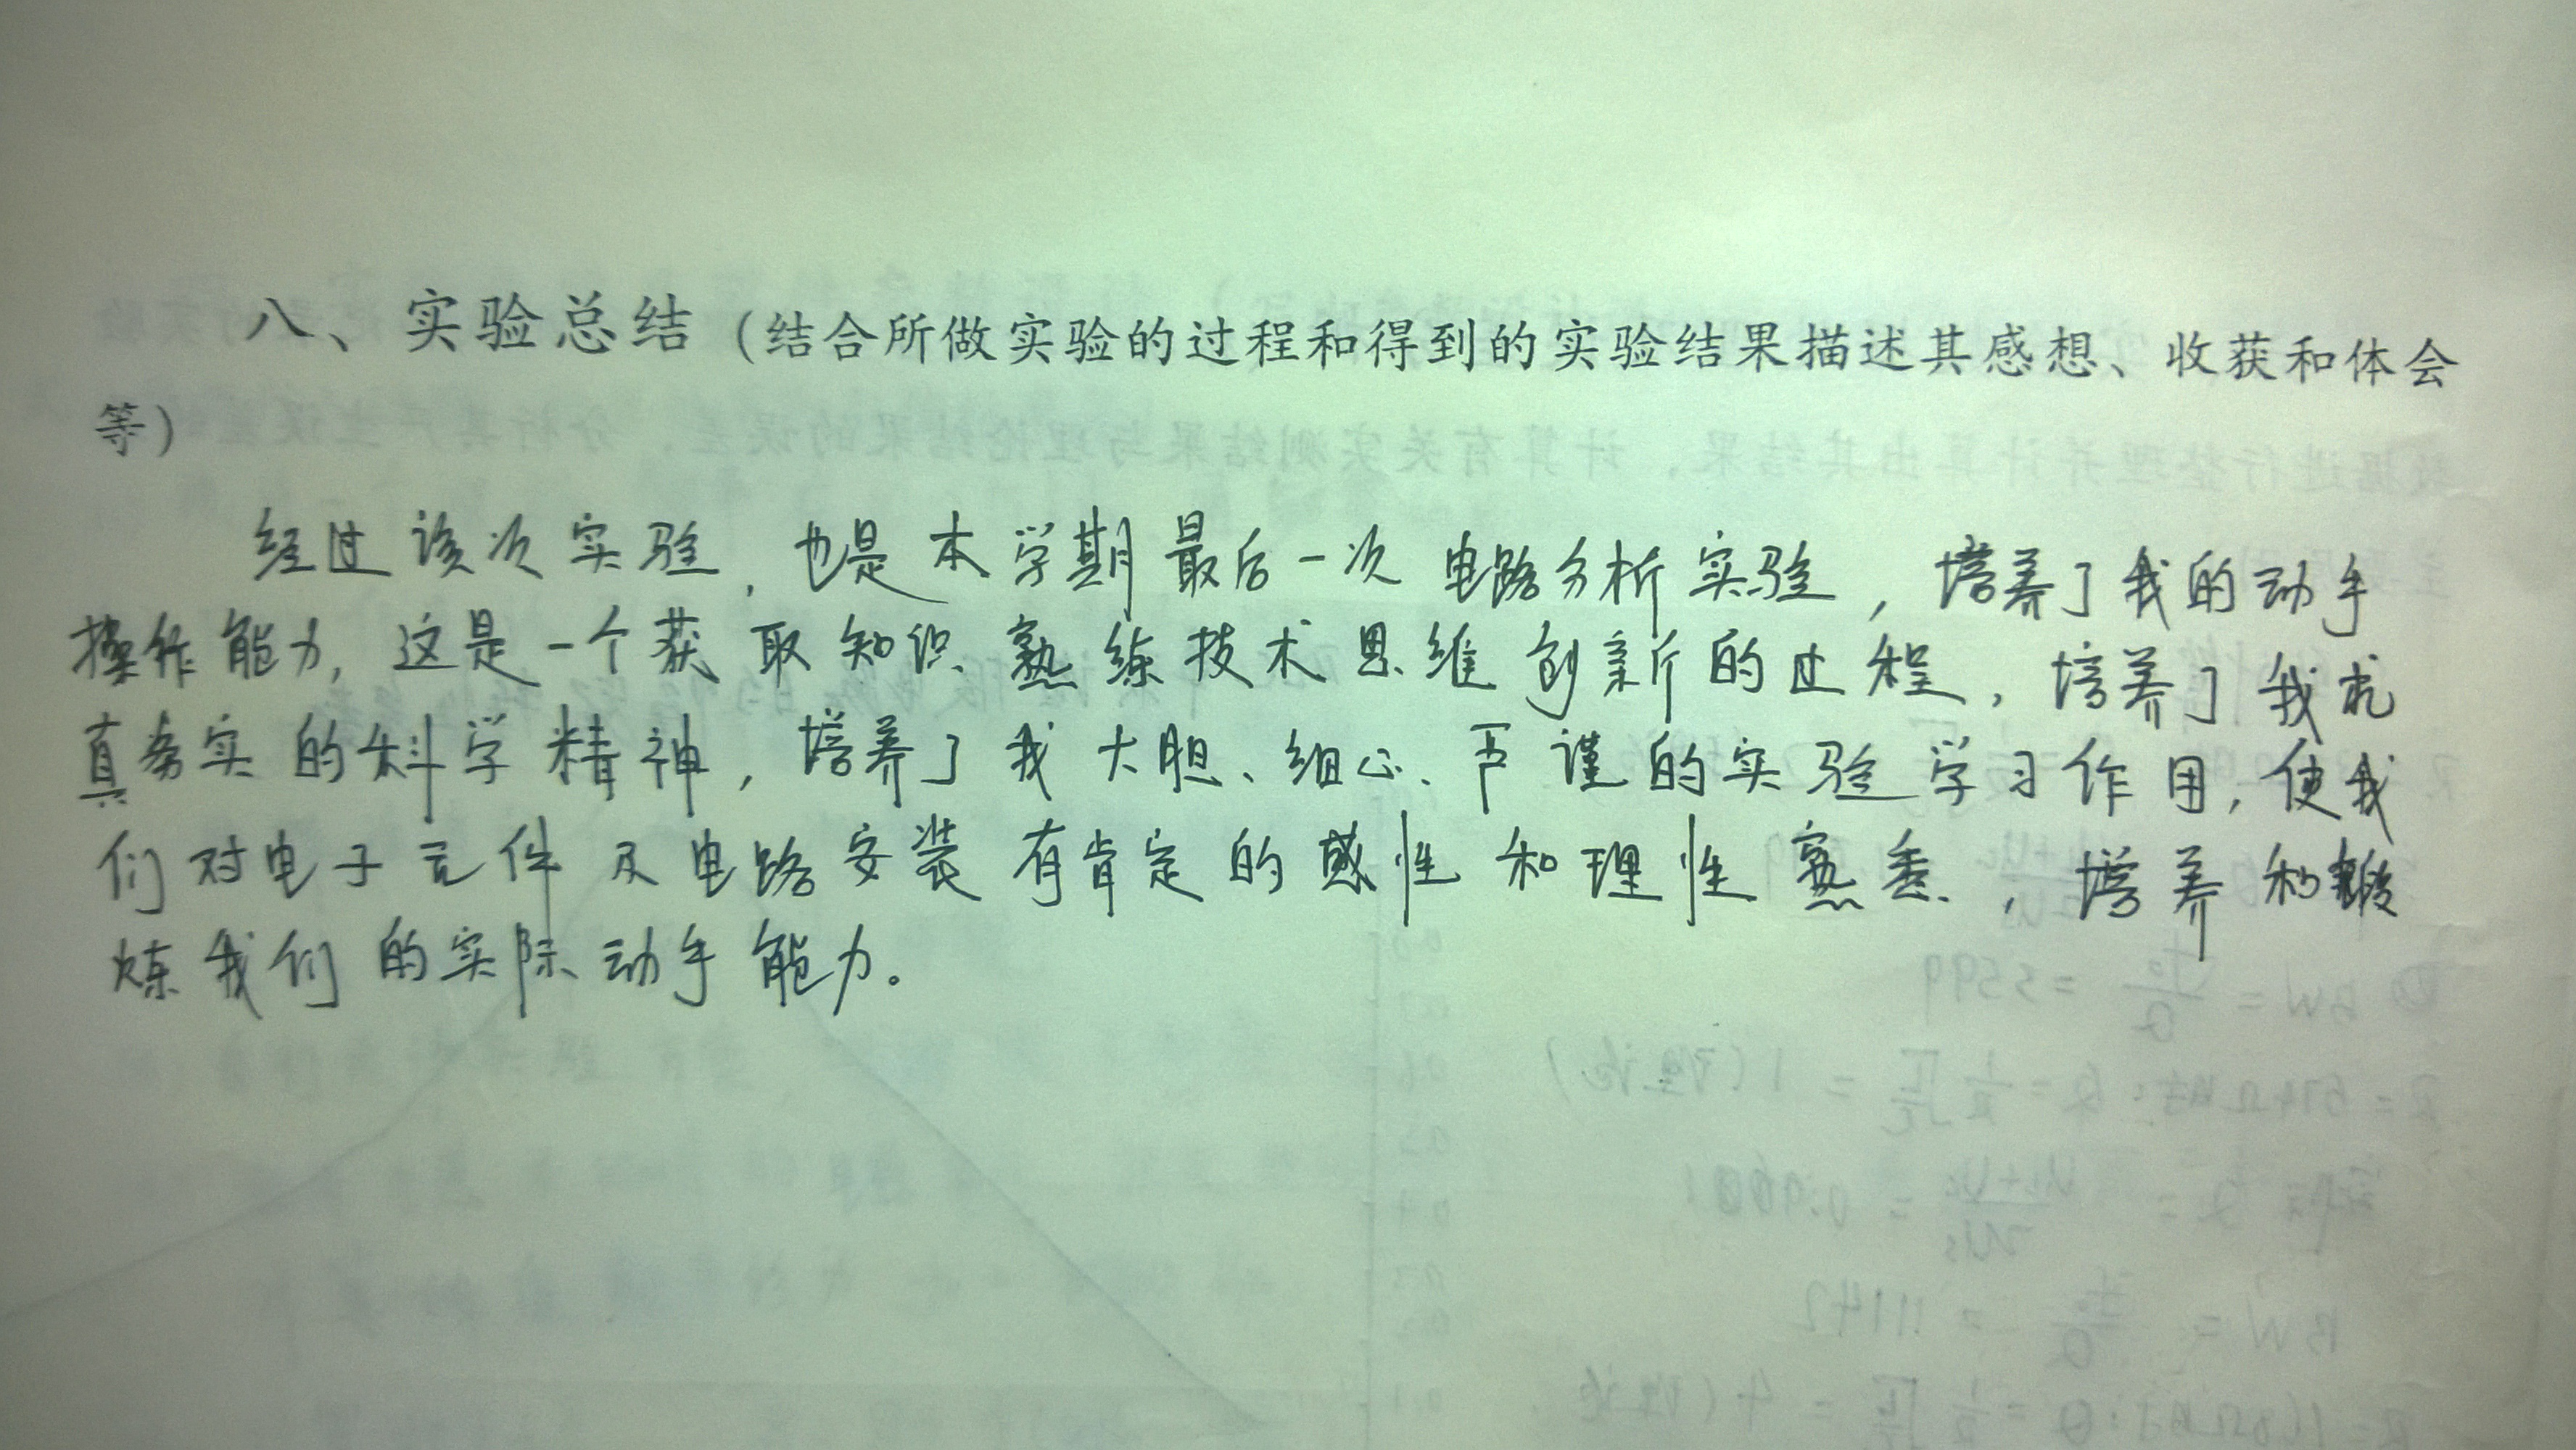 八、实验总结（结合所做实验的过程和得到的实验结果描述其感想、收获和体会
等）
经过该次实验，也是本学期最后一次电路分析实验，培养了我的动手
操作能力，这是一个获取知识熟练技术思维创新的过程，培养了我求
真务实的科学精神，培养了我大胆、细心、严谨的实验学习作用，使我
们对电子元件及电路安装有肯定的感性和理性熟悉，培养和锻
炼我们的实际动手能力。